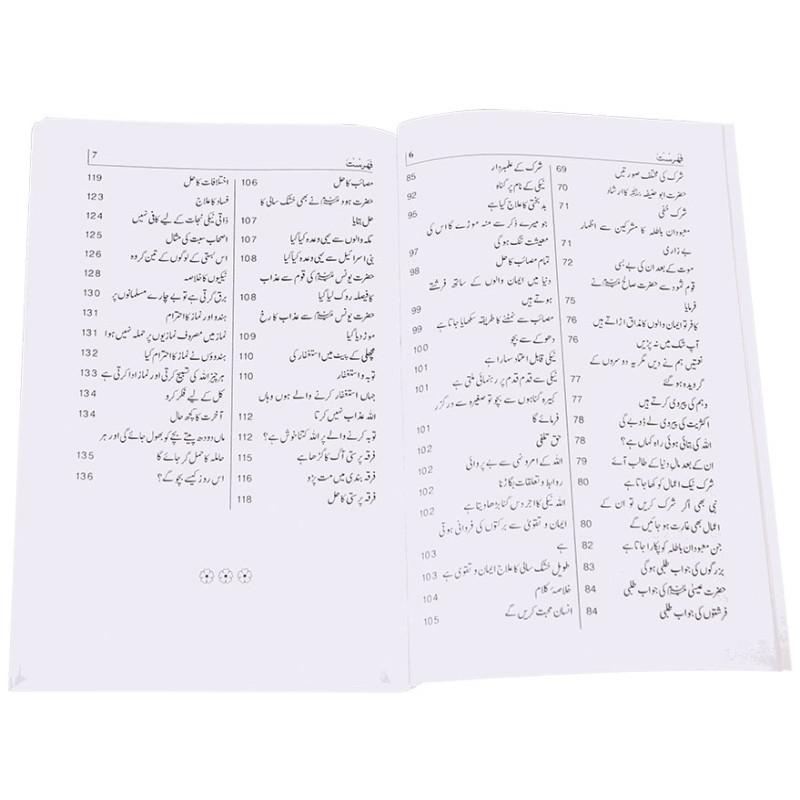 فہرست 6
شرک کی مختلف صورتیں 69
حضرت ابو حنیفہ رحمہ اللہ کا ارشاد 70
شرک خفی 71
معبودان باطلہ کا مشرکین سے اظہار
بے زاری 71
موت کے بعد ان کی بے بسی 72
قوم ثمود سے حضرت صالح علیہ السلام نے
فرمایا 75
کافر تو ایمان والوں کا مذاق اڑاتے ہیں 76
آپ شک میں نہ پڑیں 76
نعمتیں ہم نے دیں مگر یہ دوسروں کے
گرویدہ ہو گئے 77
وہم کی پیروی کرتے ہیں 77
اکثریت کی پیروی لے ڈوبے گی 78
اللہ کی بتائی ہوئی راہ کہاں ہے؟ 78
ان کے بعد مال دنیا کے طالب آئے 79
شرک نیک اعمال کو کھا جاتا ہے 80
نبی بھی اگر شرک کریں تو ان کے
اعمال بھی غارت ہو جائیں گے 80
جن معبودان باطلہ کو پکارا جاتا ہے 82
بزرگوں کی جواب طلبی ہوگی 83
حضرت عیسیٰ علیہ السلام کی جواب طلبی 84
فرشتوں کی جواب طلبی 84
شرک کے علمبردار 85
نیکی کے نام پر گناہ 92
بدبختی کا علاج کیا ہے 95
جو میرے ذکر سے منہ موڑے گا اس کی
معیشت تنگ ہوگی 97
تمام مصائب کا حل 98
دنیا میں ایمان والوں کے ساتھ فرشتے
ہوتے ہیں 99
مصائب سے نمٹنے کا طریقہ سکھایا جاتا ہے 99
دھوکے سے بچو 100
نیکی قابل اعتماد سہارا ہے 101
نیکی سے قدم قدم پر رہنمائی ملتی ہے 101
کبیرہ گناہوں سے بچو تو صغیرہ سے درگزر
فرمائے گا 101
حق تلفی 102
اللہ کے امر و نہی سے بے پروائی 102
روابط و تعلقات بگاڑنا 102
اللہ نیکی کا اجر دس گنا بڑھا دیتا ہے 102
ایمان و تقویٰ سے برکتوں کی فروانی ہوتی
ہے 103
طویل خشک سالی کا علاج ایمان و تقویٰ ہے 103
خلاصہ کلام 104
انسان محبت کریں گے 105
فہرست 7
مصائب کا حل 106
حضرت ہود علیہ السلام نے بھی خشک سالی کا
حل بتایا 107
مکہ والوں سے یہی وعدہ کیا گیا 107
بنی اسرائیل سے یہی وعدہ کیا گیا 108
حضرت یونس علیہ السلام کی قوم سے عذاب
کا فیصلہ روک لیا گیا 108
حضرت یونس علیہ السلام سے عذاب کا رخ
موڑ دیا گیا 109
مچھلی کے پیٹ میں استغفار کی 110
توبہ و استغفار 110
جہاں استغفار کرنے والے ہوں وہاں
اللہ عذاب نہیں کرتا 112
توبہ کرنے والے پر اللہ کتنا خوش ہے؟ 112
فرقہ پرستی آگ کا گڑھا ہے 115
فرقہ بندی میں مت پڑو 116
فرقہ پرستی کا حل 118
اختلافات کا حل 119
فساد کا علاج 123
ذاتی نیکی نجات کے لیے کافی نہیں 124
اصحاب سبت کی مثال 125
اس بستی کے لوگوں کے تین گروہ 126
نیکیوں کا خلاصہ 128
برق گرتی ہے تو بے چارے مسلمانوں پر 130
ہندو اور نماز کا احترام 131
نماز میں مصروف نمازیوں پر حملہ نہیں ہوا 131
ہندوؤں نے نماز کا احترام کیا 132
ہر چیز اللہ کی تسبیح کرتی اور نماز ادا کرتی ہے 133
کل کے لیے فکر کرو 134
آخرت کا کچھ حال 134
ماں دودھ پیتے بچے کو بھول جائے گی اور ہر
حاملہ کا حمل گر جائے گا 135
اس روز کیسے بچو گے؟ 136